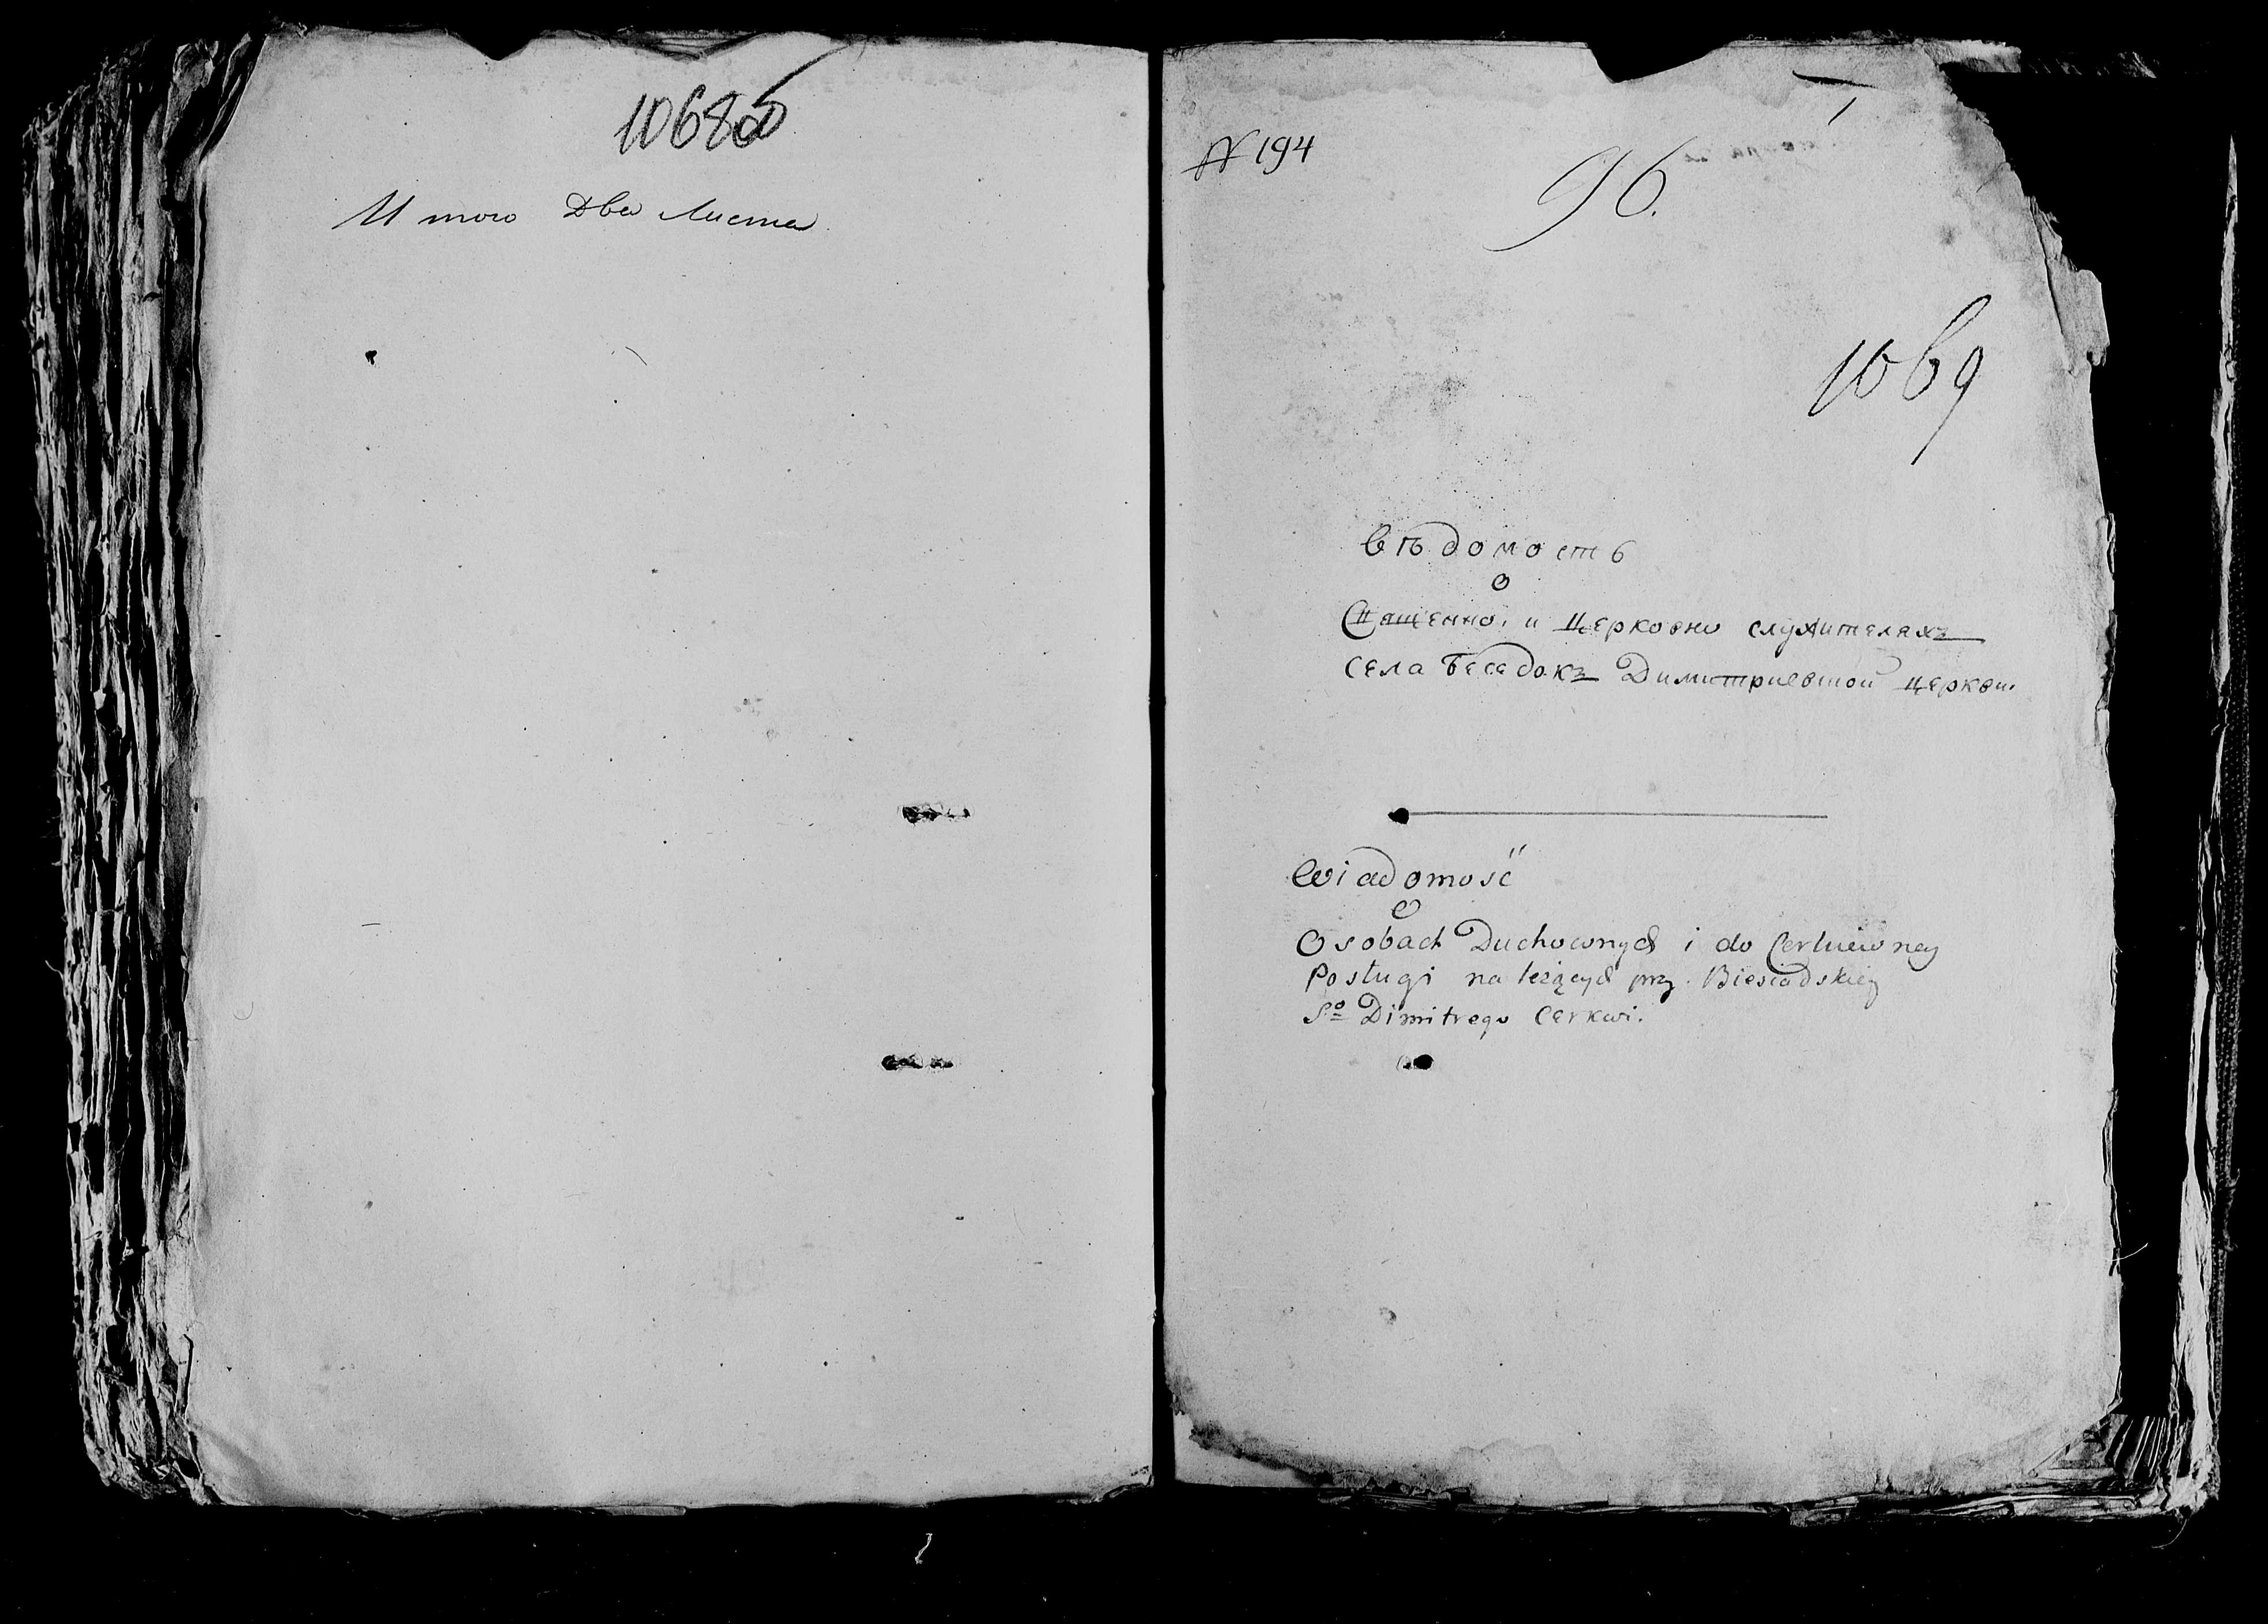 1068об
Итого Два Листа
N 194
96.
1069
Вѣдомость
о
Священно, и Церковно служителяхъ
села Беседокъ Димитриевской церкви.
Wiadomość
o
Osobach Duchownych i do Cerkiewney
Posługi należących przy Biesiadskiey
So Dimitrego Cerkwi.